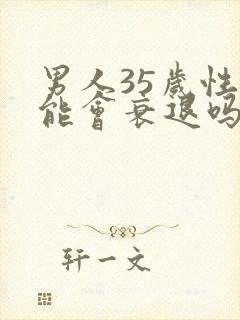 男人35歲性
能會衰退吗
轩一文